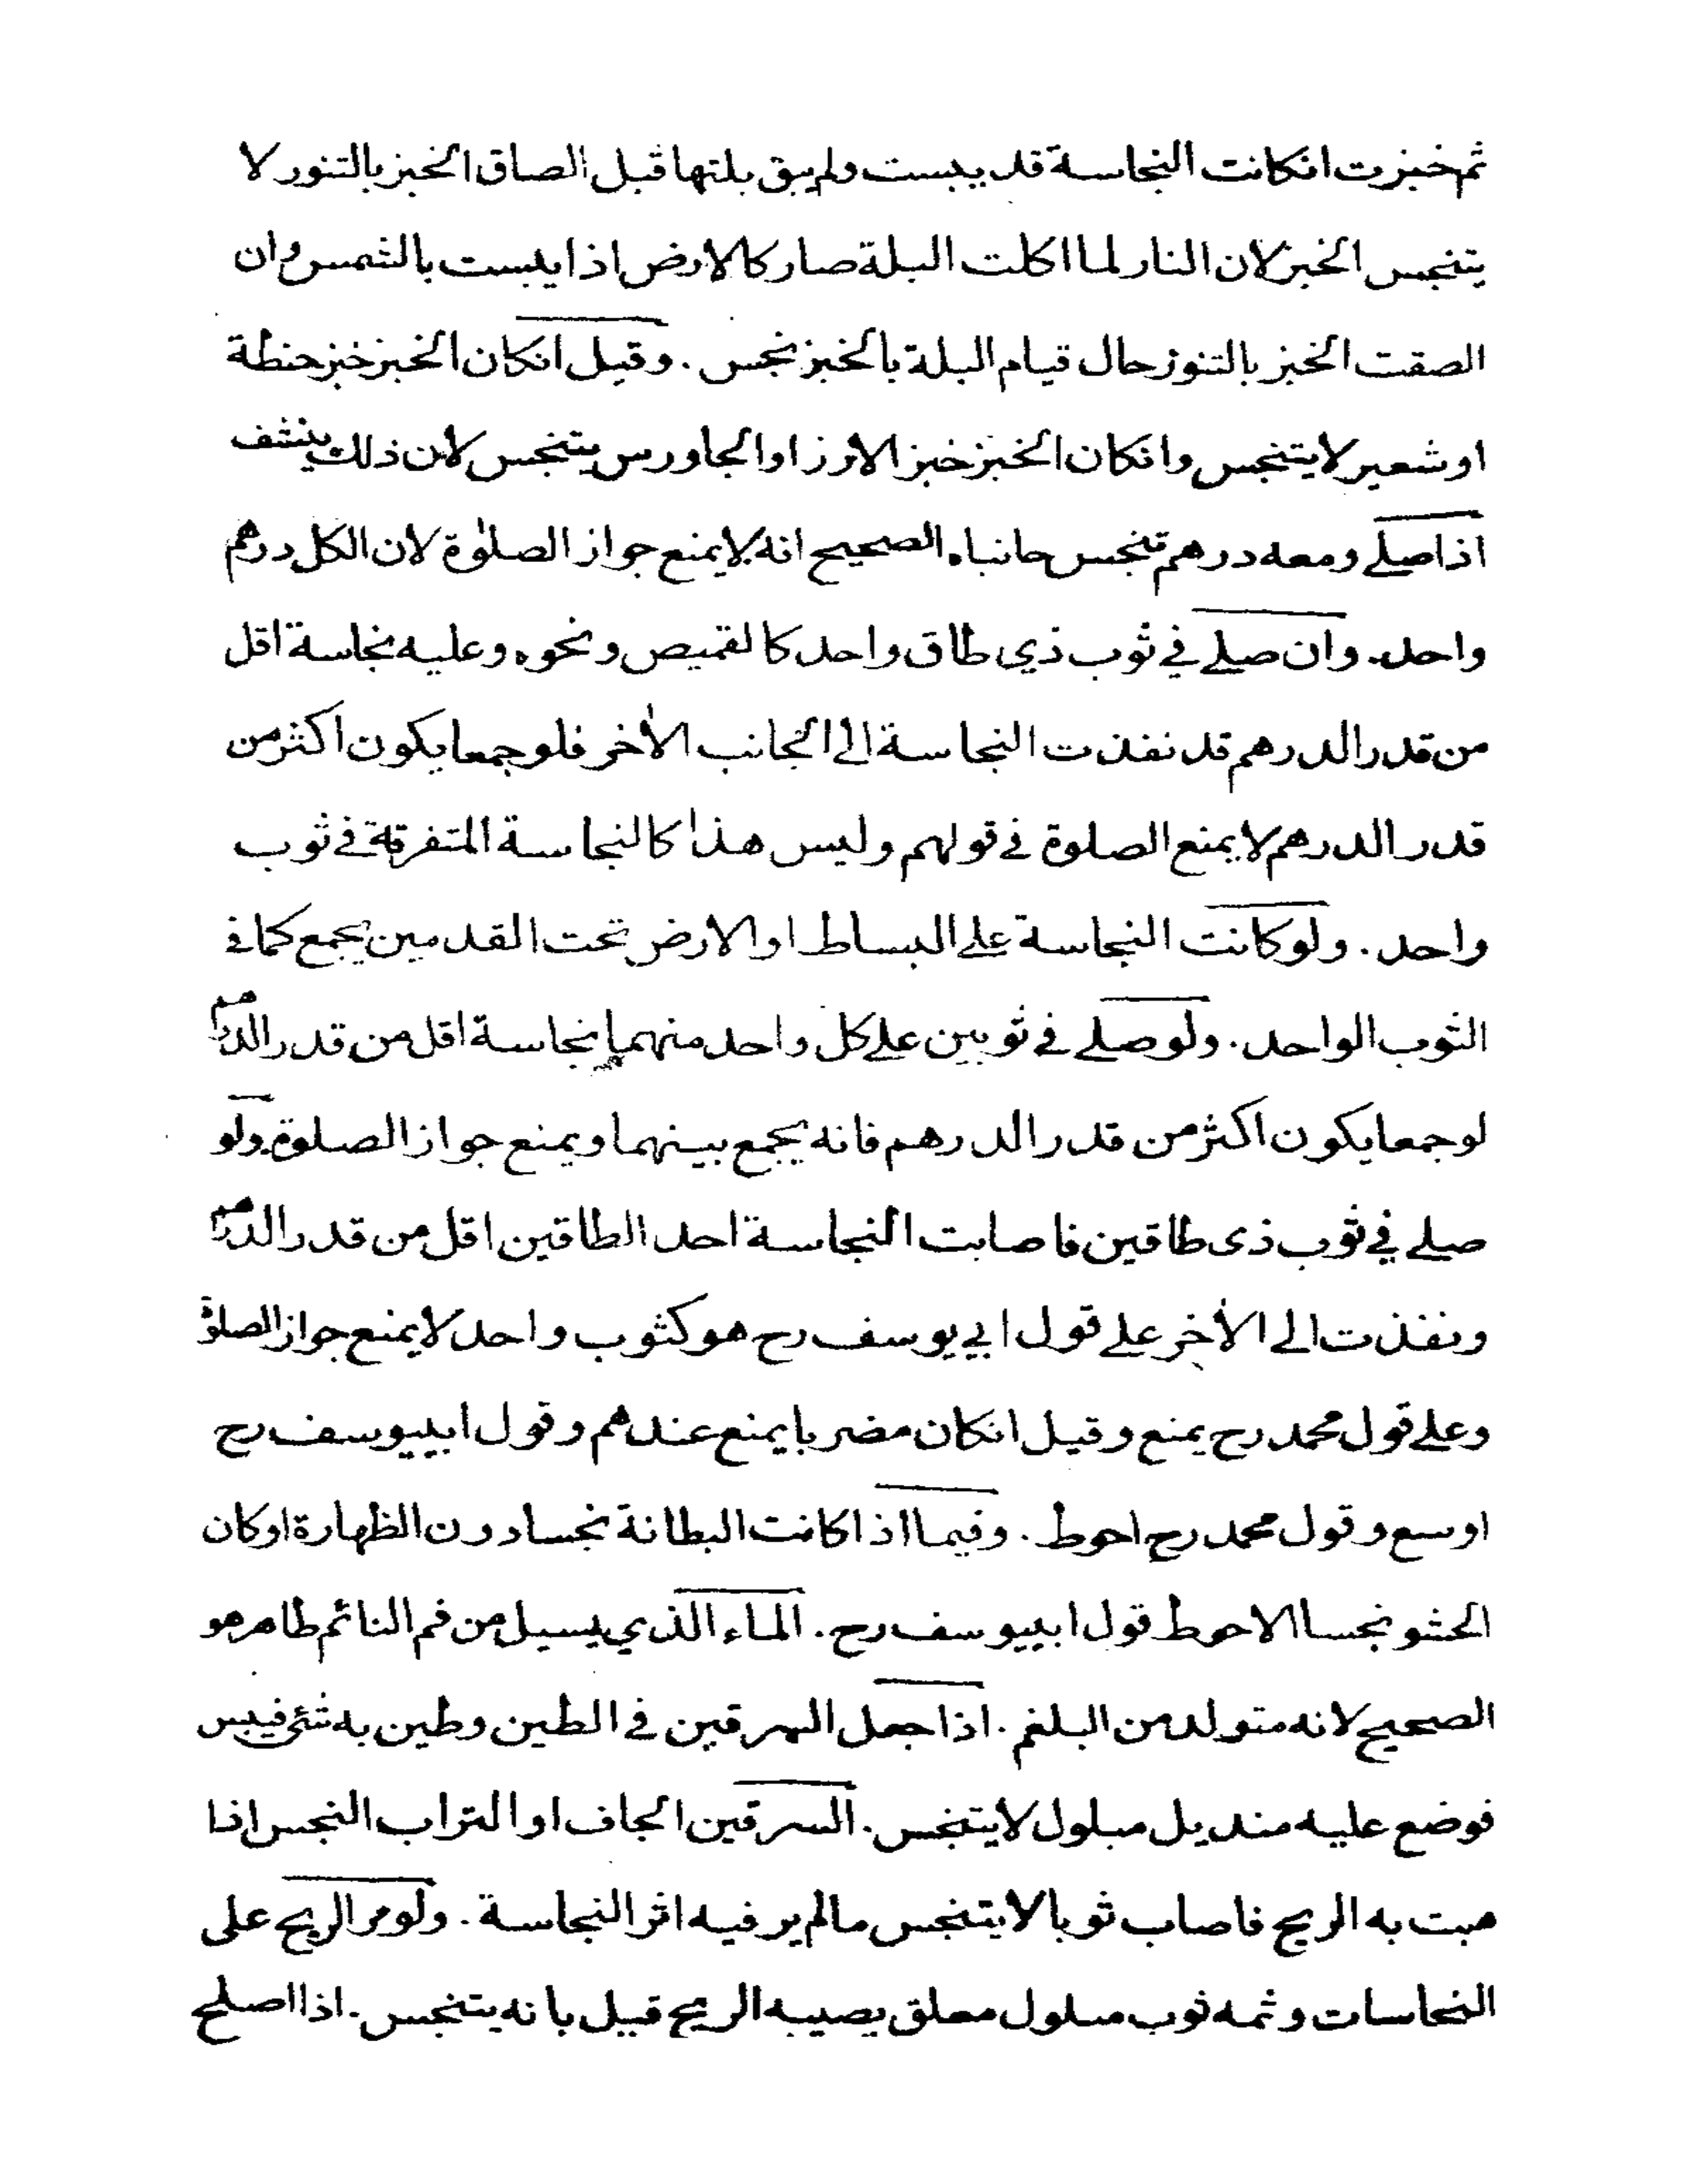 ثم خبزت انكانت النجاسة قد يبست ولم يبق بلتها قبل الصاق الخبز بالتنور لا
يتنجس الخبز لان النار لما اكلت البلة صار كالارض اذا يبست بالشمس وان
الصقت الخبز بالتنور حال قيام البلة بالخبز نجس . وقيل انكان الخبز خبز حنطة
او شعير لا يتنجس وانكان الخبز خبز الارز او الجاورس يتنجس لان ذلك ينشف
اذا صلے ومعه درهم تنجس جانباه الصحيح انه لا يمنع جواز الصلوٰة لان الكل درهم
واحد . وان صلے في ثوب ذي طاق واحد كالقميص ونحوه وعليه نجاسة اقل
من قدر الدرهم قد نفذت النجاسة الے الجانب الاٰخر فلو جمعا يكون اكثر من
قدر الدرهم لا يمنع الصلوة في قولهم وليس هذا كالنجاسة المتفرقة في ثوب
واحد . ولو كانت النجاسة علے البساط او الارض تحت القدمين يجمع كما في
الثوب الواحد . ولو صلے في ثوبين علے كل واحد منهما نجاسة اقل من قدر الدرهم
لو جمعا يكون اكثر من قدر الدرهم فانه يجمع بينهما ويمنع جواز الصلوة ولو
صلے في ثوب ذى طاقين فاصابت النجاسة احد الطاقين اقل من قدر الدرهم
ونفذت الے الاٰخر علے قول ابي يوسف رح هو كثوب واحد لا يمنع جواز الصلوة
وعلے قول محمد رح يمنع وقيل انكان مضربا يمنع عندهم وقول ابييوسف رح
اوسع وقول محمد رح احوط . وفيما اذا كانت البطانة نجسا دون الظهارة او كان
الحشو نجسا الاحوط قول ابييوسف رح . الماء الذي يسيل من فم النائم طاهر هو
الصحيح لانه متولد من البلغم . اذا جعل السرقين في الطين وطين به شئ فيبس
فوضع عليه منديل مبلول لا يتنجس . السرقين الجاف او التراب النجس اذا
هبت به الريح فاصاب ثوبا لا يتنجس ما لم ير فيه اثر النجاسة . ولو مر الريح على
النجاسات وثمه ثوب مبلول معلق يصيبه الريح قيل بانه يتنجس . اذا اصلح